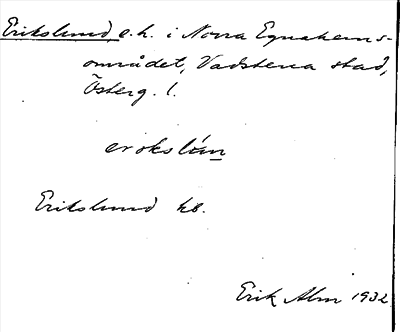 Erikslund, e.h. i Norra Egnahems-
området, Vadstena stad,
Österg. l.
erokslún
Erikslund hs.
Erik Alm 1932